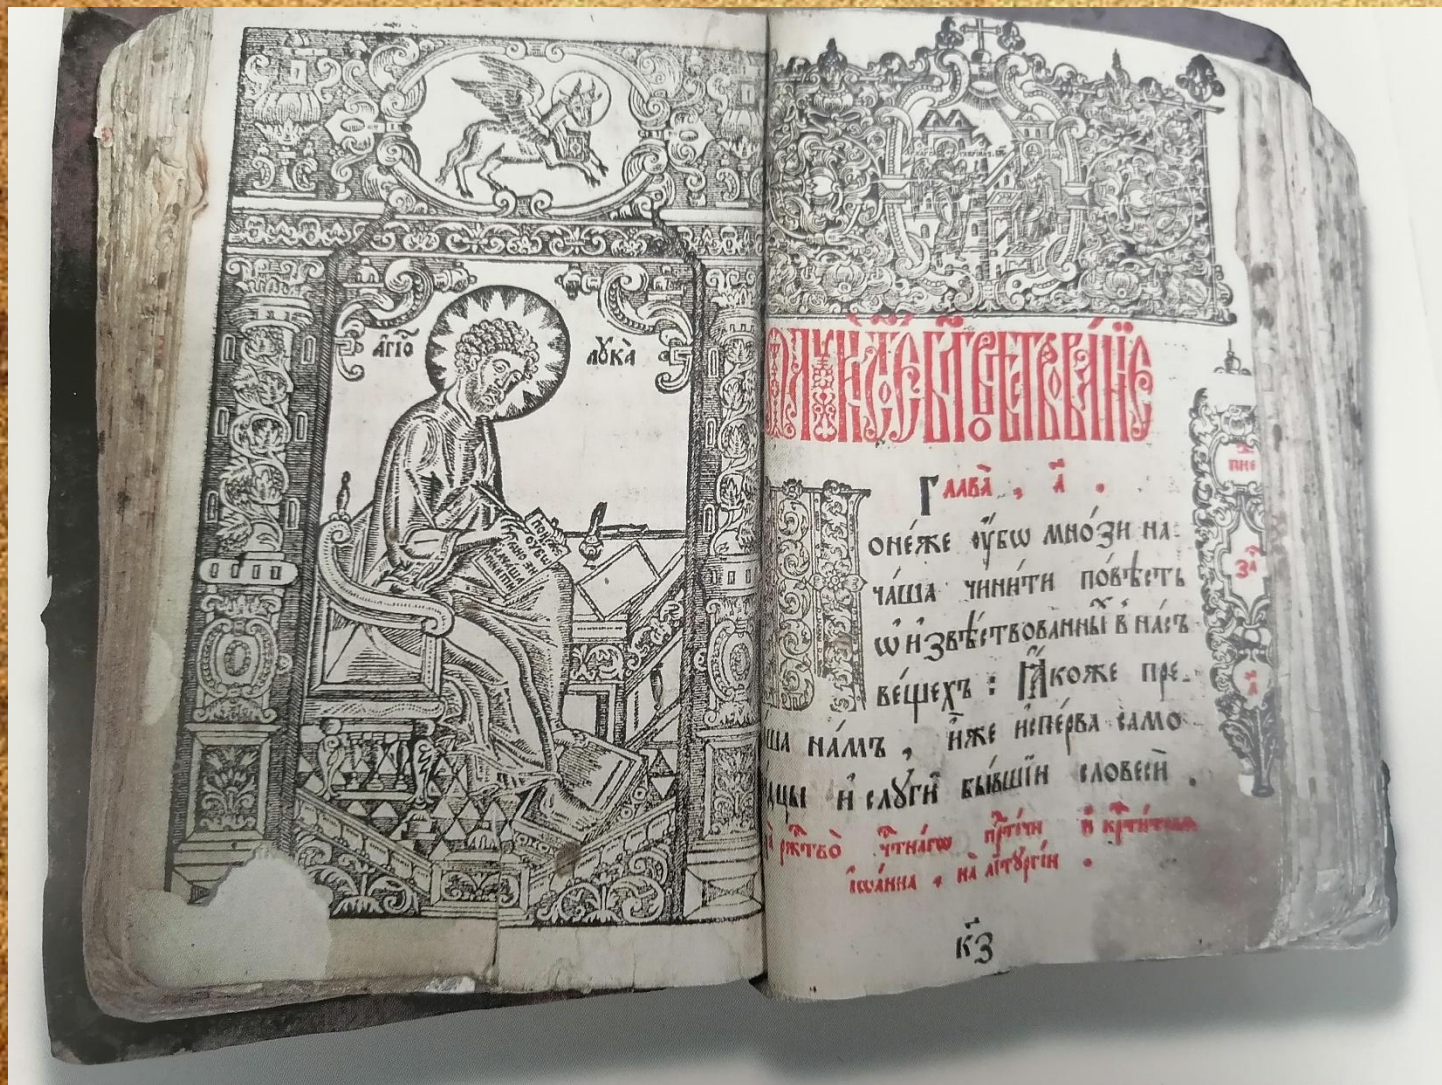 а҆́гїо лꙋка̀
лꙋки́ ст҃о́е бл҃говѣствова́нїе
Глава̀ , а҃ .
оне́же ᲂу҆́бѡ мно́зи на-
ча́ша чини́ти по́вѣсть
ѡ҆ и҆звѣ́ствованныⷯ в на́съ
ве́щехъ : Ꙗ҆́коже пре-
ша на́мъ , и҆́же и҆спе́рва само
дцы и҆ слꙋги̑ бы́вшїи словесѝ .
ржⷭ҇тво̀ чⷭ҇тна́гѡ прⷣте́чи и҆ крⷭ҇ти́телѧ
і҆ѡа́нна , на̀ литꙋргі́и .
к҃з
пне
за҃
а҃